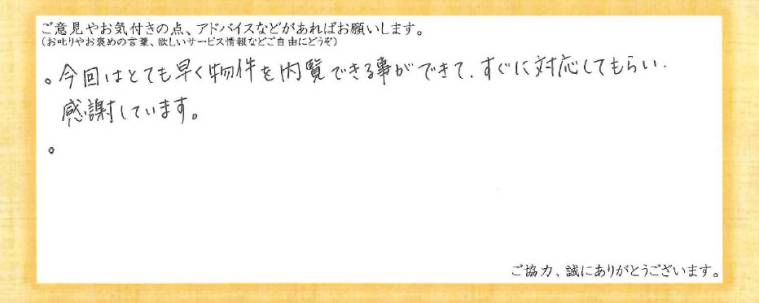 ご意見やお気付きの点、アドバイスなどがあればお願いします。
(お叱りやお褒めの言葉、欲しいサービス情報などご自由にどうぞ)
。今回はとても早く物件を内覧できる事ができて、すぐに対応してもらい、
感謝しています。
。
ご協力、誠にありがとうございます。